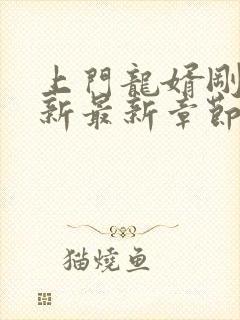 上門龍婿剛
新最新章節
猫燒鱼